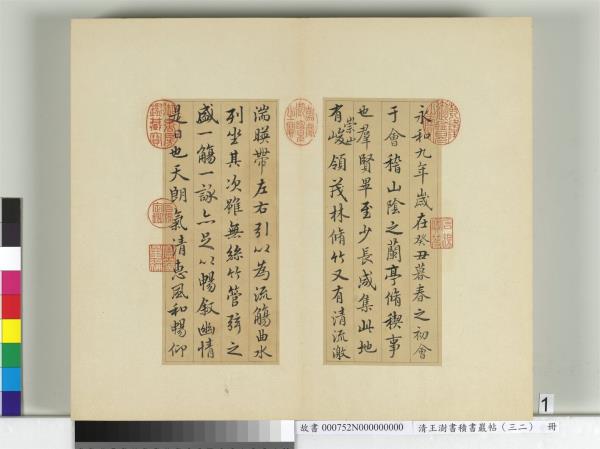 永和九年歲在癸丑暮春之初會
于會稽山陰之蘭亭脩稧事
也羣賢畢至少長咸集此地
有崇山峻領茂林脩竹又有清流激
湍暎帶左右引以為流觴曲水
列坐其次雖無絲竹管弦之
盛一觴一詠亦足以暢敘幽情
是日也天朗氣清惠風和暢仰
1
故書 000752N000000000 清王澍書積書巖帖（三二） 冊